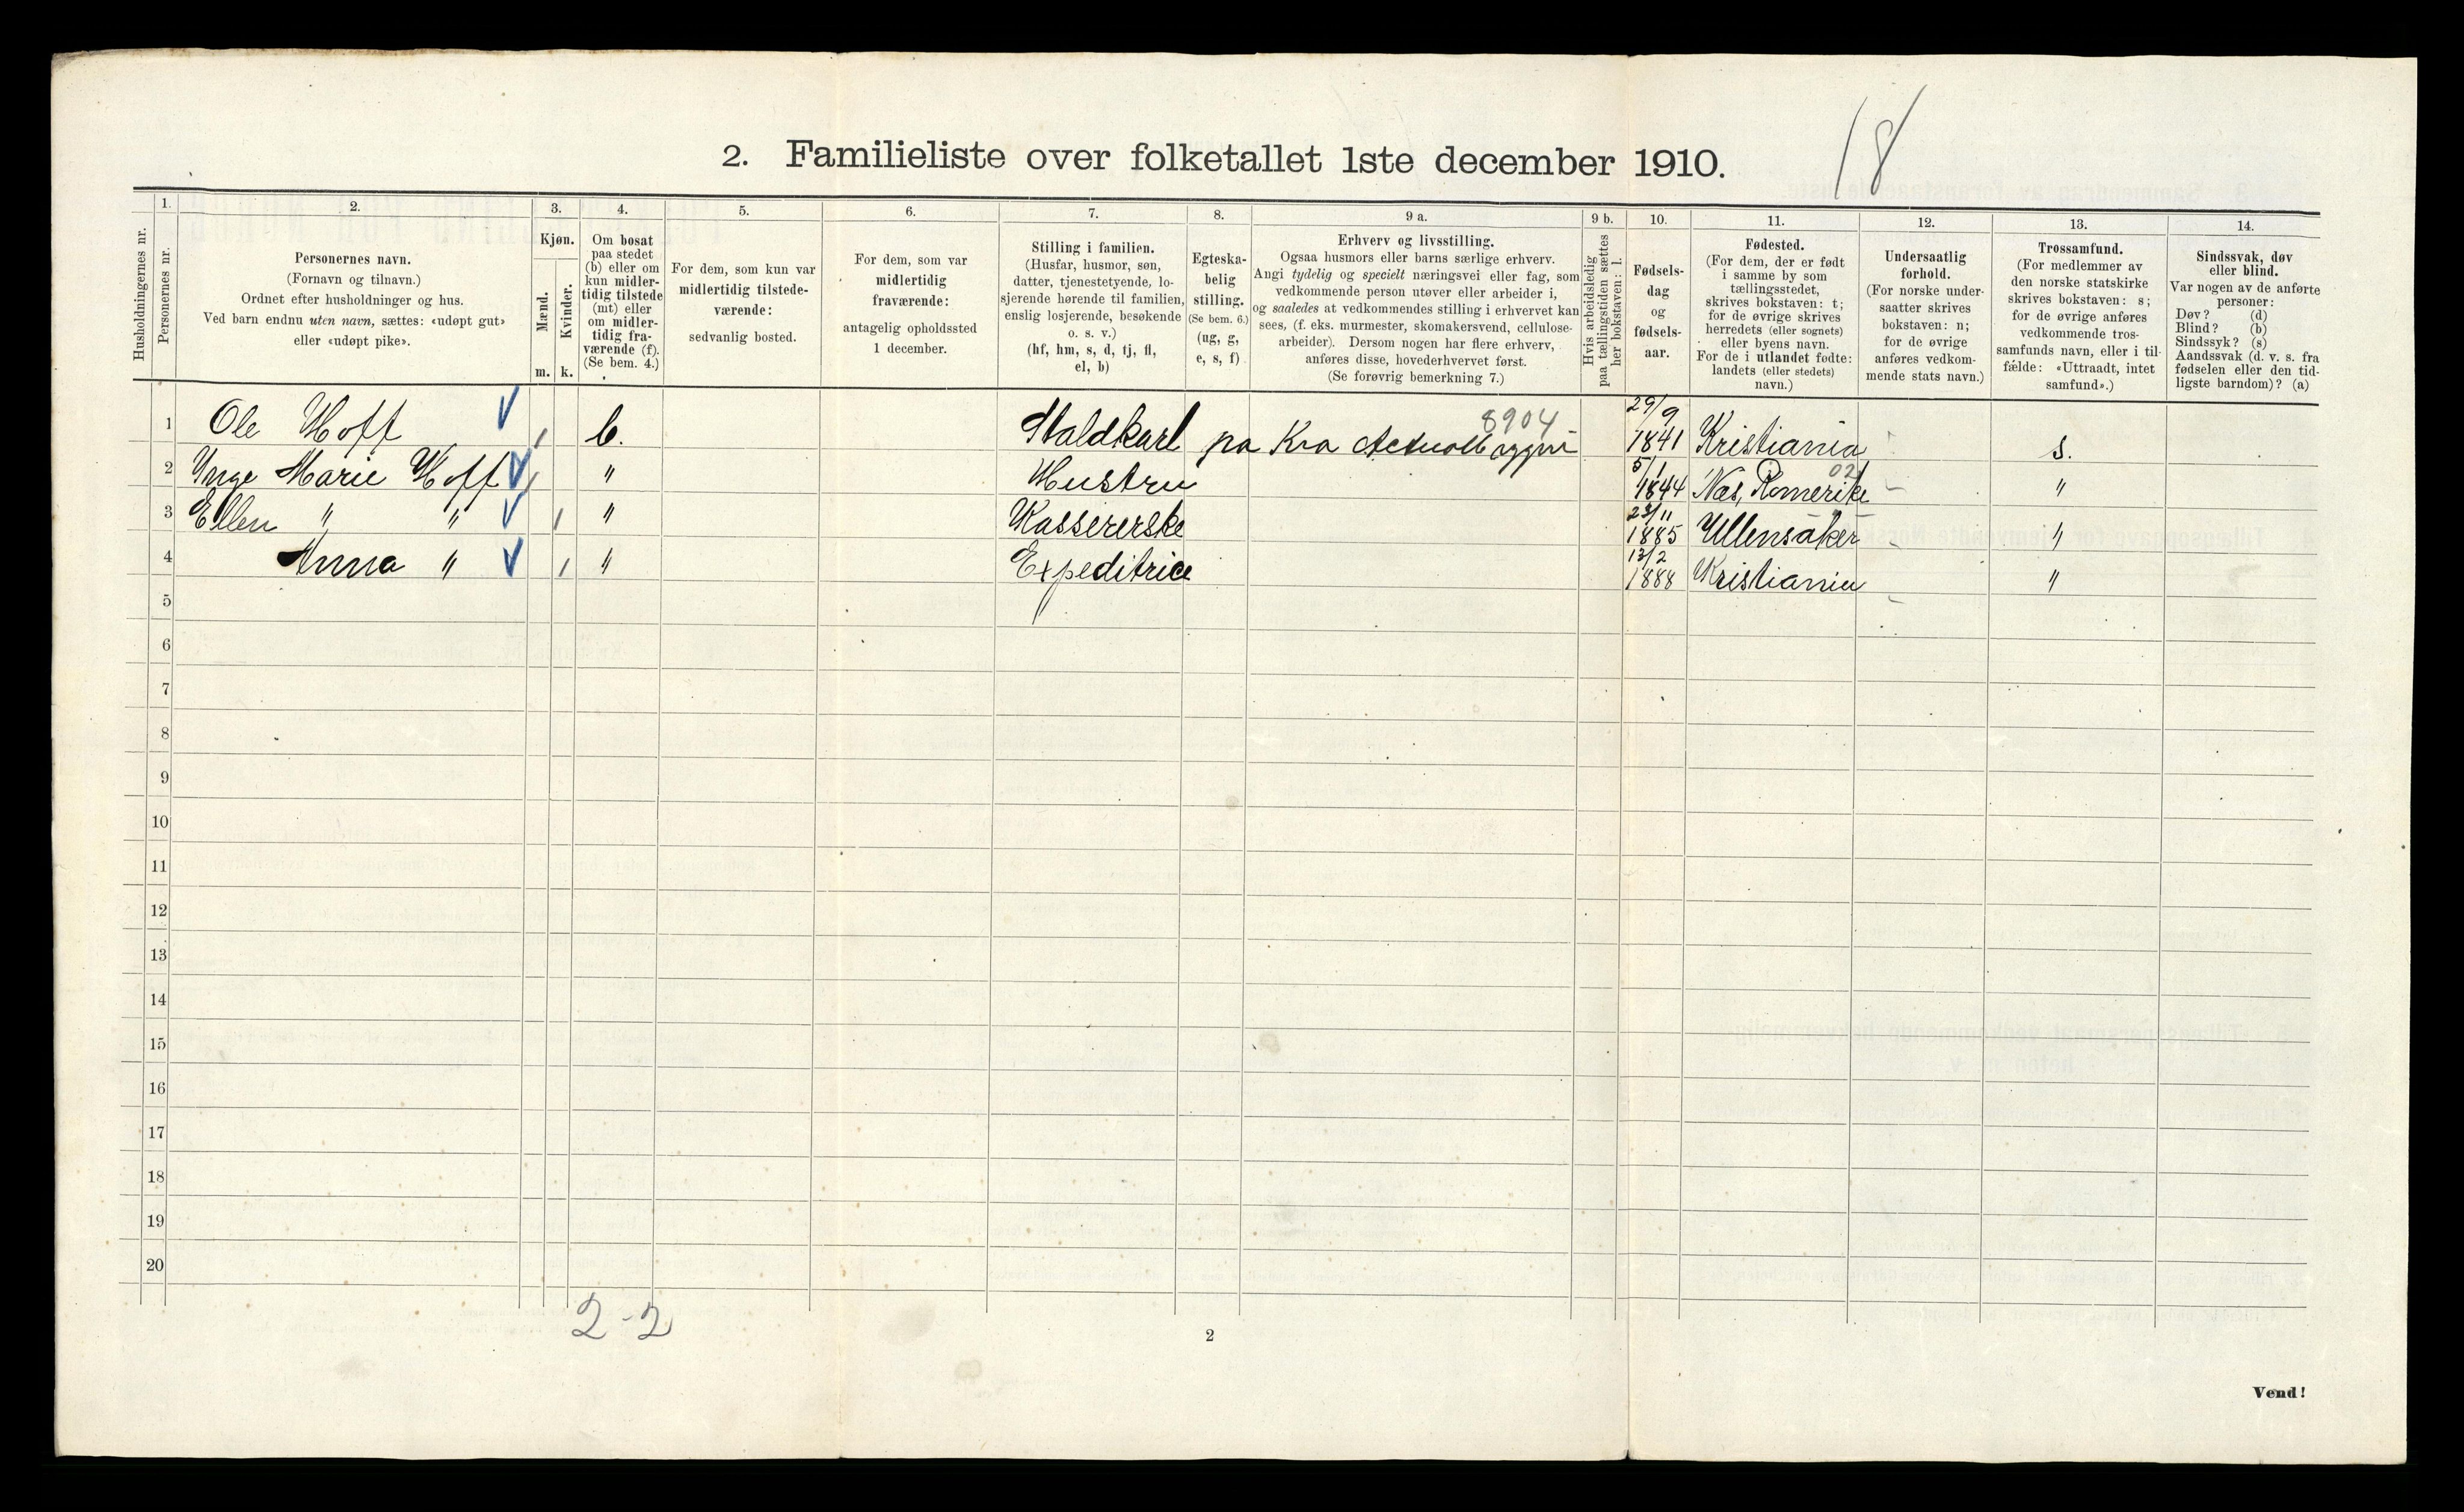 18
2. Familieliste over folketallet 1ste december 1910.
Husholdningernes nr.
1. Personernes nr.
2. Personernes navn.
(Fornavn og tilnavn.)
Ordnet efter husholdninger og hus.
Ved barn endnu uten navn, sættes: «udøpt gut»
eller «udøpt pike».
3. Kjøn.
Mænd. m.
Kvinder. k.
4. Om bosat
paa stedet
(b) eller om
kun midler-
tidig tilstede
(mt) eller
om midler-
tidig fra-
værende (f).
(Se bem. 4.)
5. For dem, som kun var
midlertidig tilstede-
værende:
sedvanlig bosted.
6. For dem, som var
midlertidig
fraværende:
antagelig opholdssted
1 december.
7. Stilling i familien.
(Husfar, husmor, søn,
datter, tjenestetyende, lo-
sjerende hørende til familien,
enslig losjerende, besøkende
o. s. v.)
(hf, hm, s, d, tj, fl,
el, b)
8. Egteska-
belig
stilling.
(Se bem. 6.)
(ug, g,
e, s, f)
9 a. Erhverv og livsstilling.
Ogsaa husmors eller barns særlige erhverv.
Angi tydelig og specielt næringsvei eller fag, som
vedkommende person utøver eller arbeider i,
og saaledes at vedkommendes stilling i erhvervet kan
sees, (f. eks. murmester, skomakersvend, cellulose-
arbeider). Dersom nogen har flere erhverv,
anføres disse, hovederhvervet først.
(Se forøvrig bemerkning 7.)
9 b. Hvis arbeidsledig
paa tællingstiden sættes
her bokstaven: l.
10. Fødsels-
dag
og
fødsels-
aar.
11. Fødested.
(For dem, der er født
i samme by som
tællingsstedet,
skrives bokstaven: t;
for de øvrige skrives
herredets (eller sognets)
eller byens navn.
For de i utlandet fødte:
landets (eller stedets)
navn.)
12. Undersaatlig
forhold.
(For norske under-
saatter skrives
bokstaven: n;
for de øvrige
anføres vedkom-
mende stats navn.)
13. Trossamfund.
(For medlemmer av
den norske statskirke
skrives bokstaven: s;
for de øvrige anføres
vedkommende tros-
samfunds navn, eller i til-
fælde: «Uttraadt, intet
samfund».)
14. Sindssvak, døv
eller blind.
Var nogen av de anførte
personer:
Døv? (d)
Blind? (b)
Sindssyk? (s)
Aandssvak (d. v. s. fra
fødselen eller den tid-
ligste barndom)? (a)
1 Ole Hoff 1 b. Staldkarl pa Kra 8904 29/9 1841 Kristiania s.
2 Inge Marie Hoff 1 " Hustru 5/1 1844 Nes, Romerike 02 "
3 Ellen " " 1 " Kassererske 23/11 1885 Ullensaker "
4 Anna " 1 " Expeditrice 13/2 1888 Kristiania "
5
6
7
8
9
10
11
12
13
14
15
16
17
18
19
20
2-2
2
Vend!